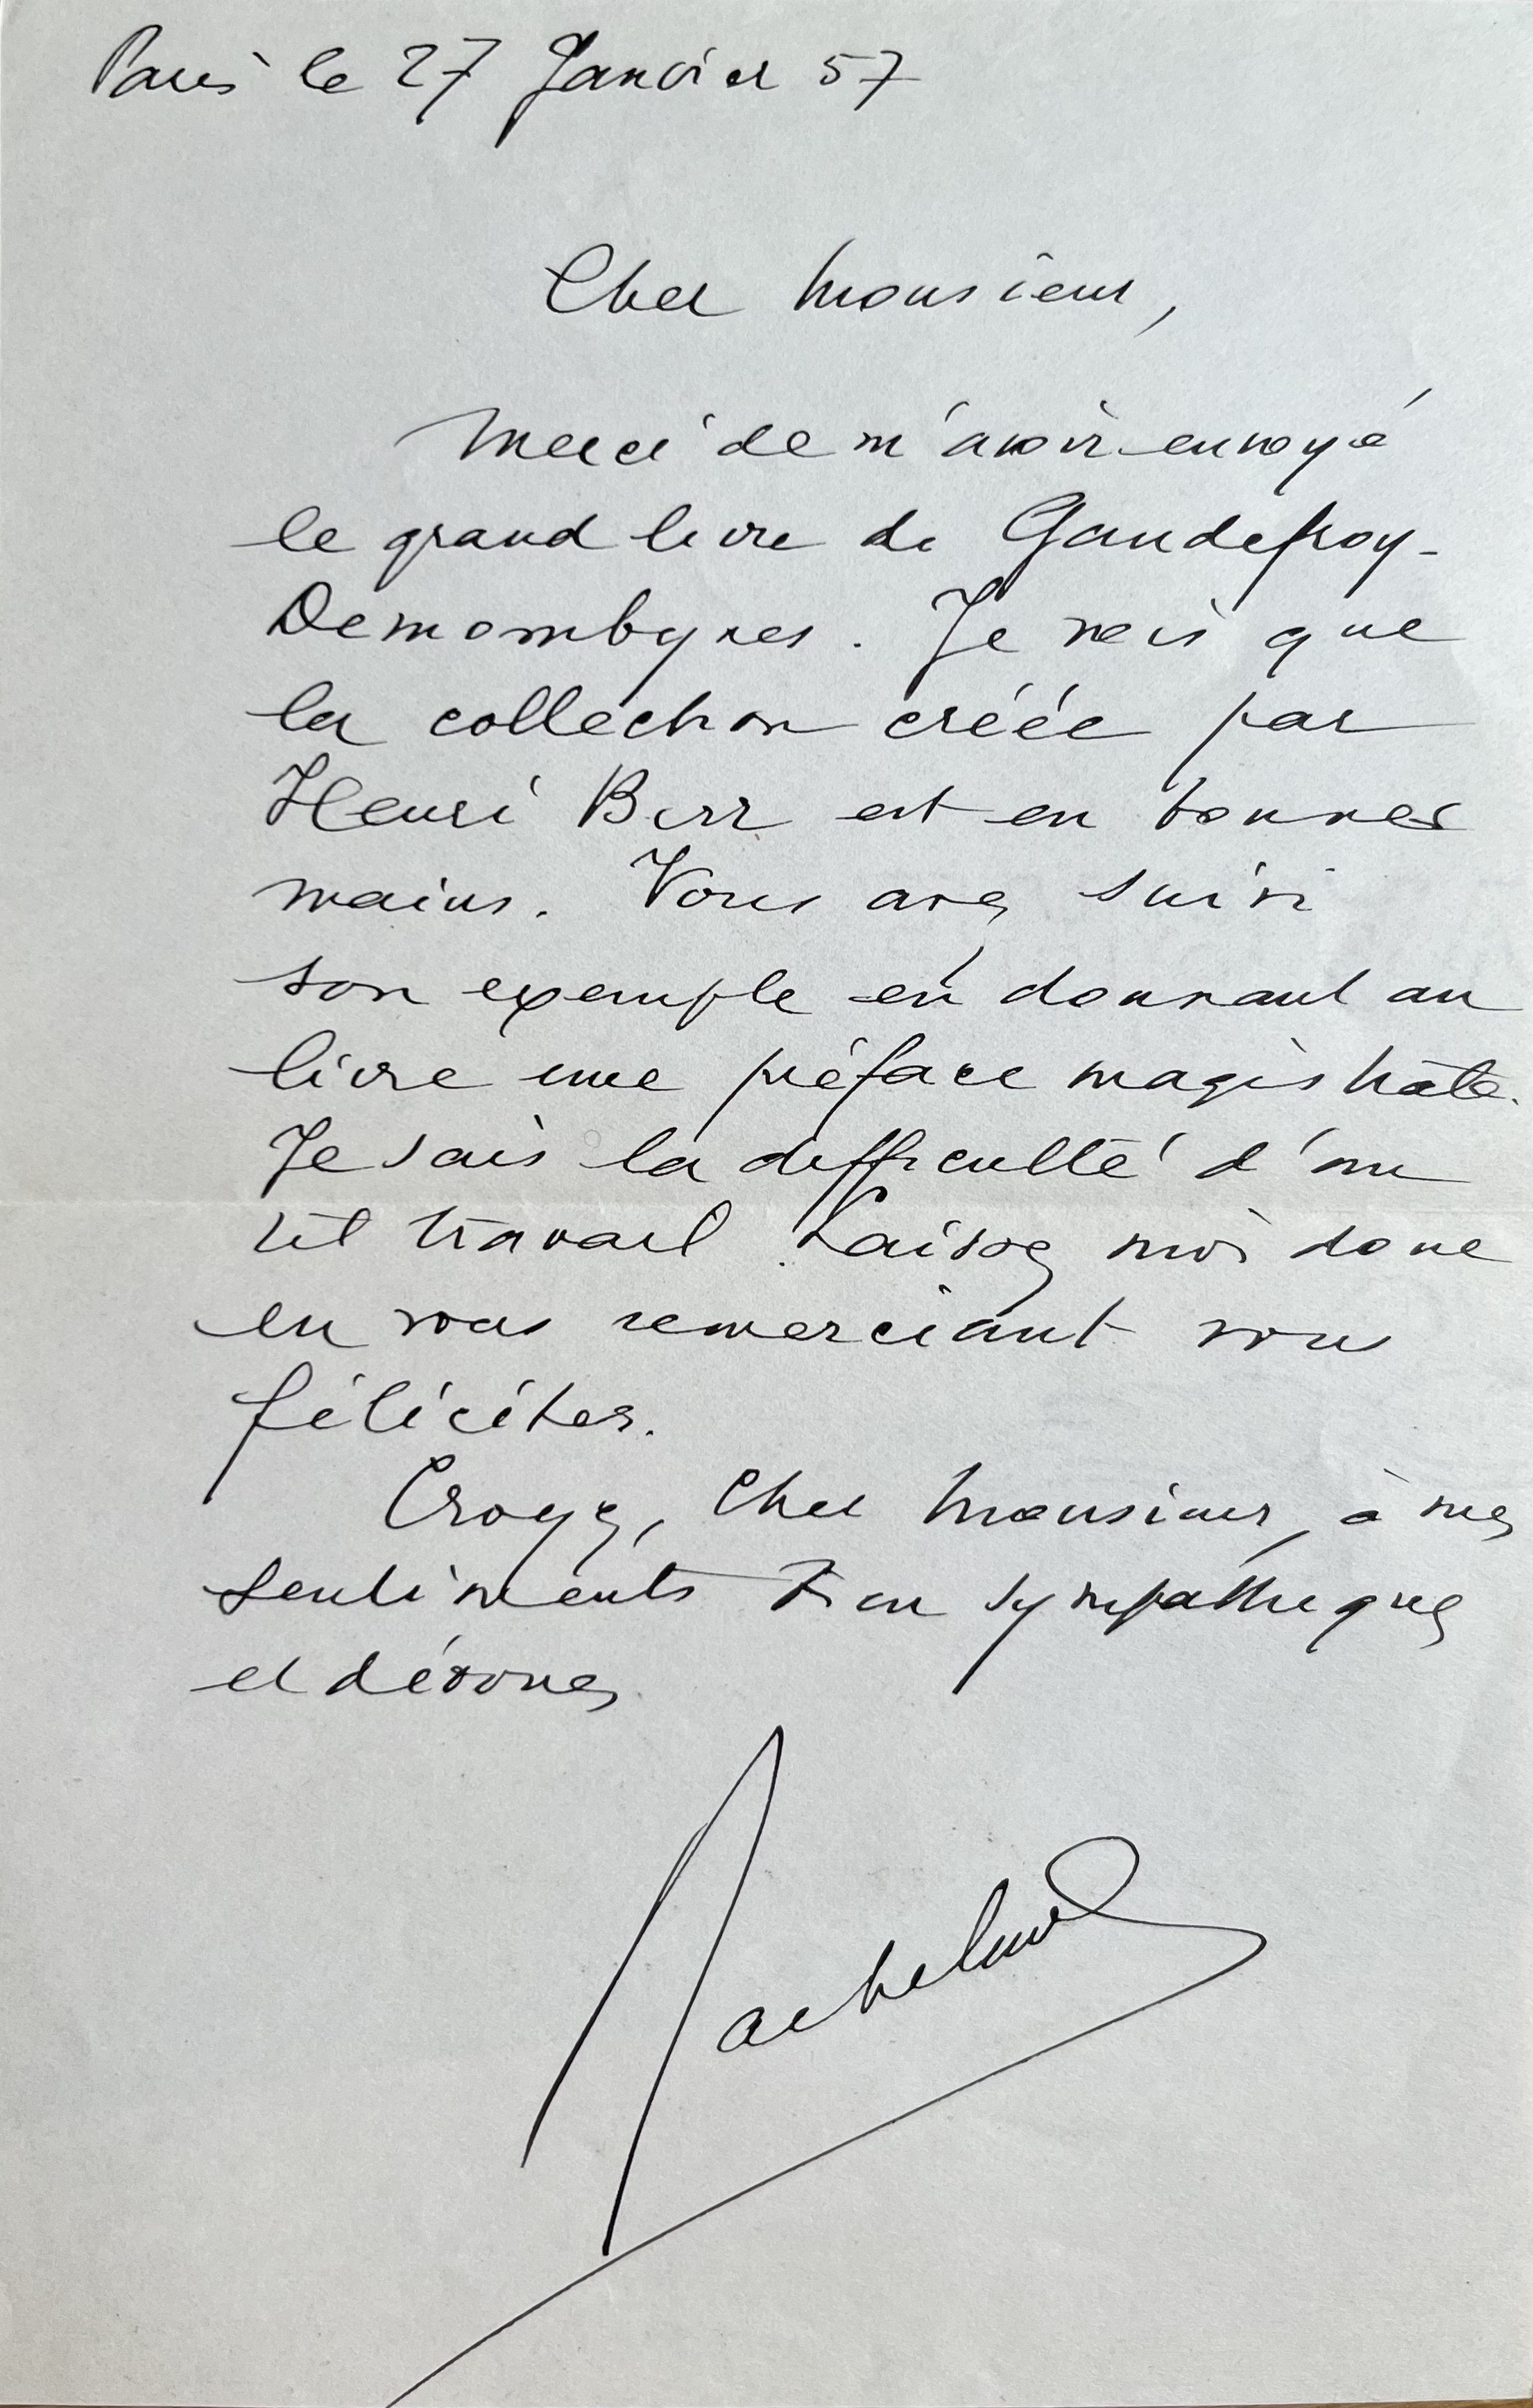 Paris le 27 Janvier 57
Cher Monsieur,
Merci de m'avoir envoyé
le grand livre de Gaudefroy-
Demombynes. Je vois que
la collection créée par
Henri Berr est en bonnes
mains. Vous avez suivi
son exemple en donnant au
livre une préface magistrale.
Je sais la difficulté d'un
tel travail. Laissez moi donc
en vous remerciant vous
féliciter.
Croyez, Cher Monsieur, à mes
sentiments bien sympathiques
et dévoués
Bachelard